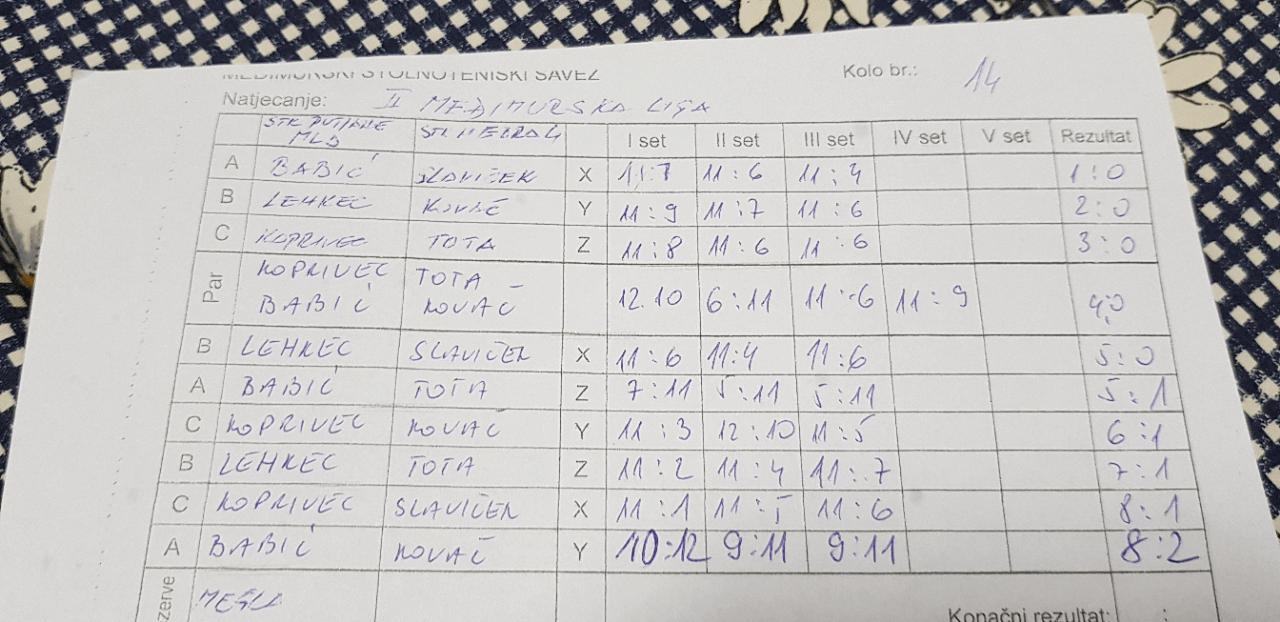 MEĐIMURSKI STOLNOTENISKI SAVEZ
Kolo br.: 14
Natjecanje: II MEĐIMURSKA LIGA
STK PUTJANE MLB I set II set III set IV set V set Rezultat
A BABIĆ SLAVIČEK X 11:7 11:6 11:4 1:0
B LEHKEC KOVAČ Y 11:9 11:7 11:6 2:0
C KOPRIVEC TOTA Z 11:8 11:6 11:6 3:0
Par KOPRIVEC BABIĆ TOTA KOVAČ 12.10 6:11 11:6 11:9 4:0
B LEHKEC SLAVIČEK X 11:6 11:4 11:6 5:0
A BABIĆ TOTA Z 7:11 5:11 5:11 5:1
C KOPRIVEC KOVAČ Y 11:3 12:10 11:5 6:1
B LEHKEC TOTA Z 11:2 11:4 11:7 7:1
C KOPRIVEC SLAVIČEK X 11:1 11:5 11:6 8:1
A BABIĆ KOVAČ Y 10:12 9:11 9:11 8:2
zerve
Konačni rezultat: :